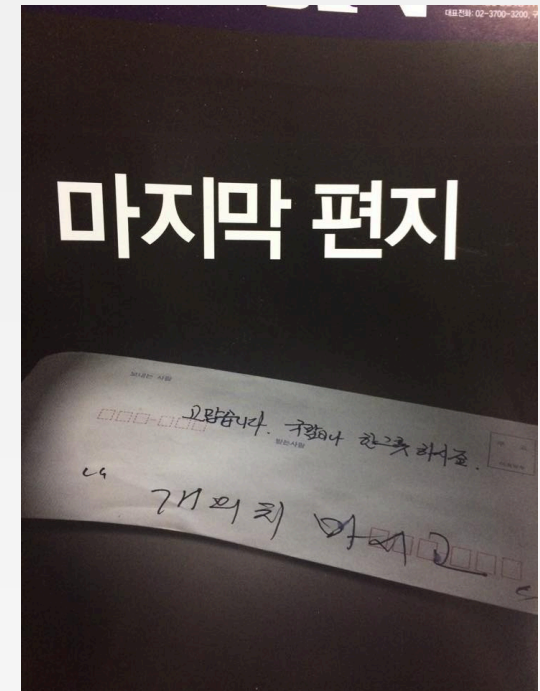 대표전화: 02-3700-3200, 구
마지막 편지
보내는 사람
고맙습니다. 국밥이나 한그릇 하시죠.
받는사람
“ 개의치 마시고 “